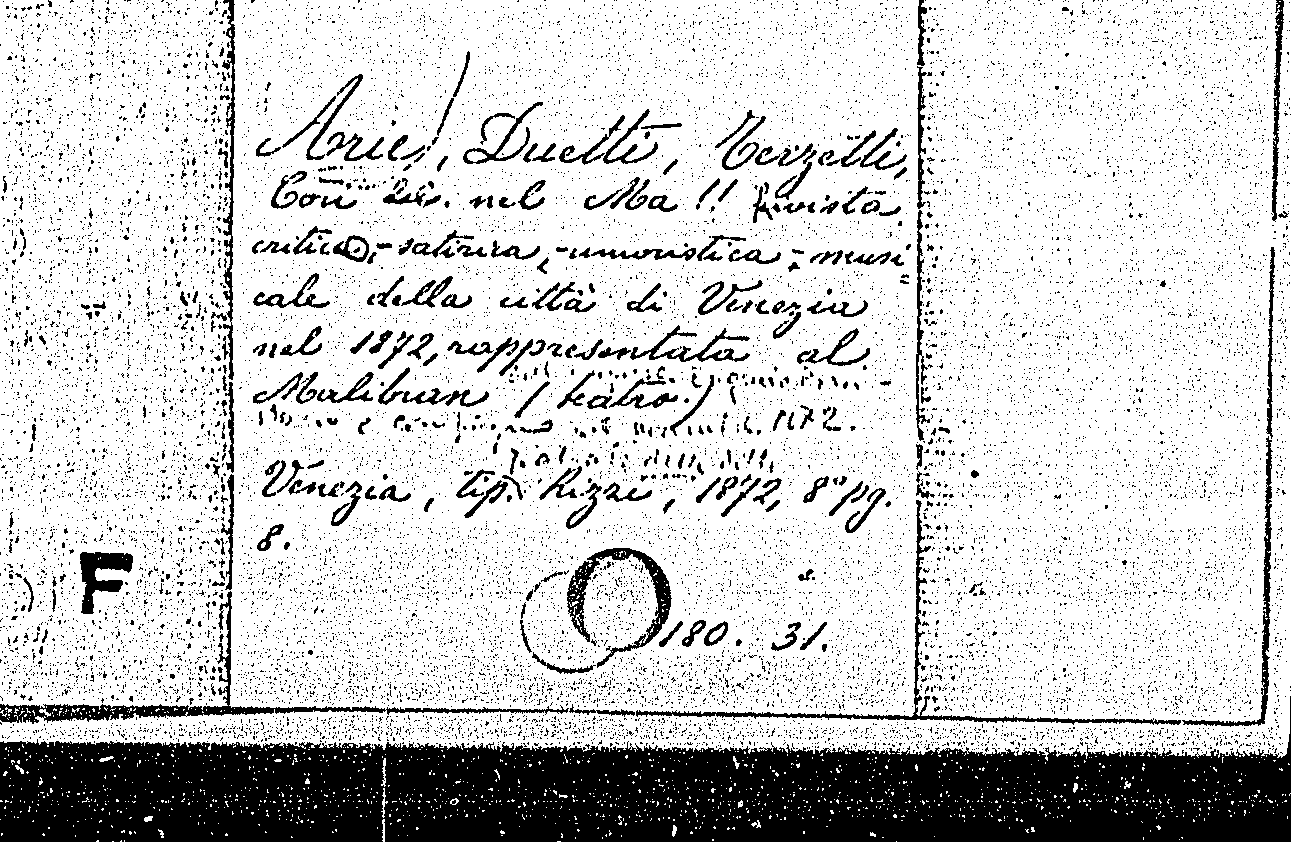 Arie, Duetti, Terzetti,
Cori &c. nel Ma!! Rivista
critica,-satirica,-umoristica,-musi=
cale della città di Venezia
nel 1872, rappresentata al
Malibran (teatro.)
1872.
Venezia, tip. Rizzi, 1872, 8° pg.
8.
180. 31.
F